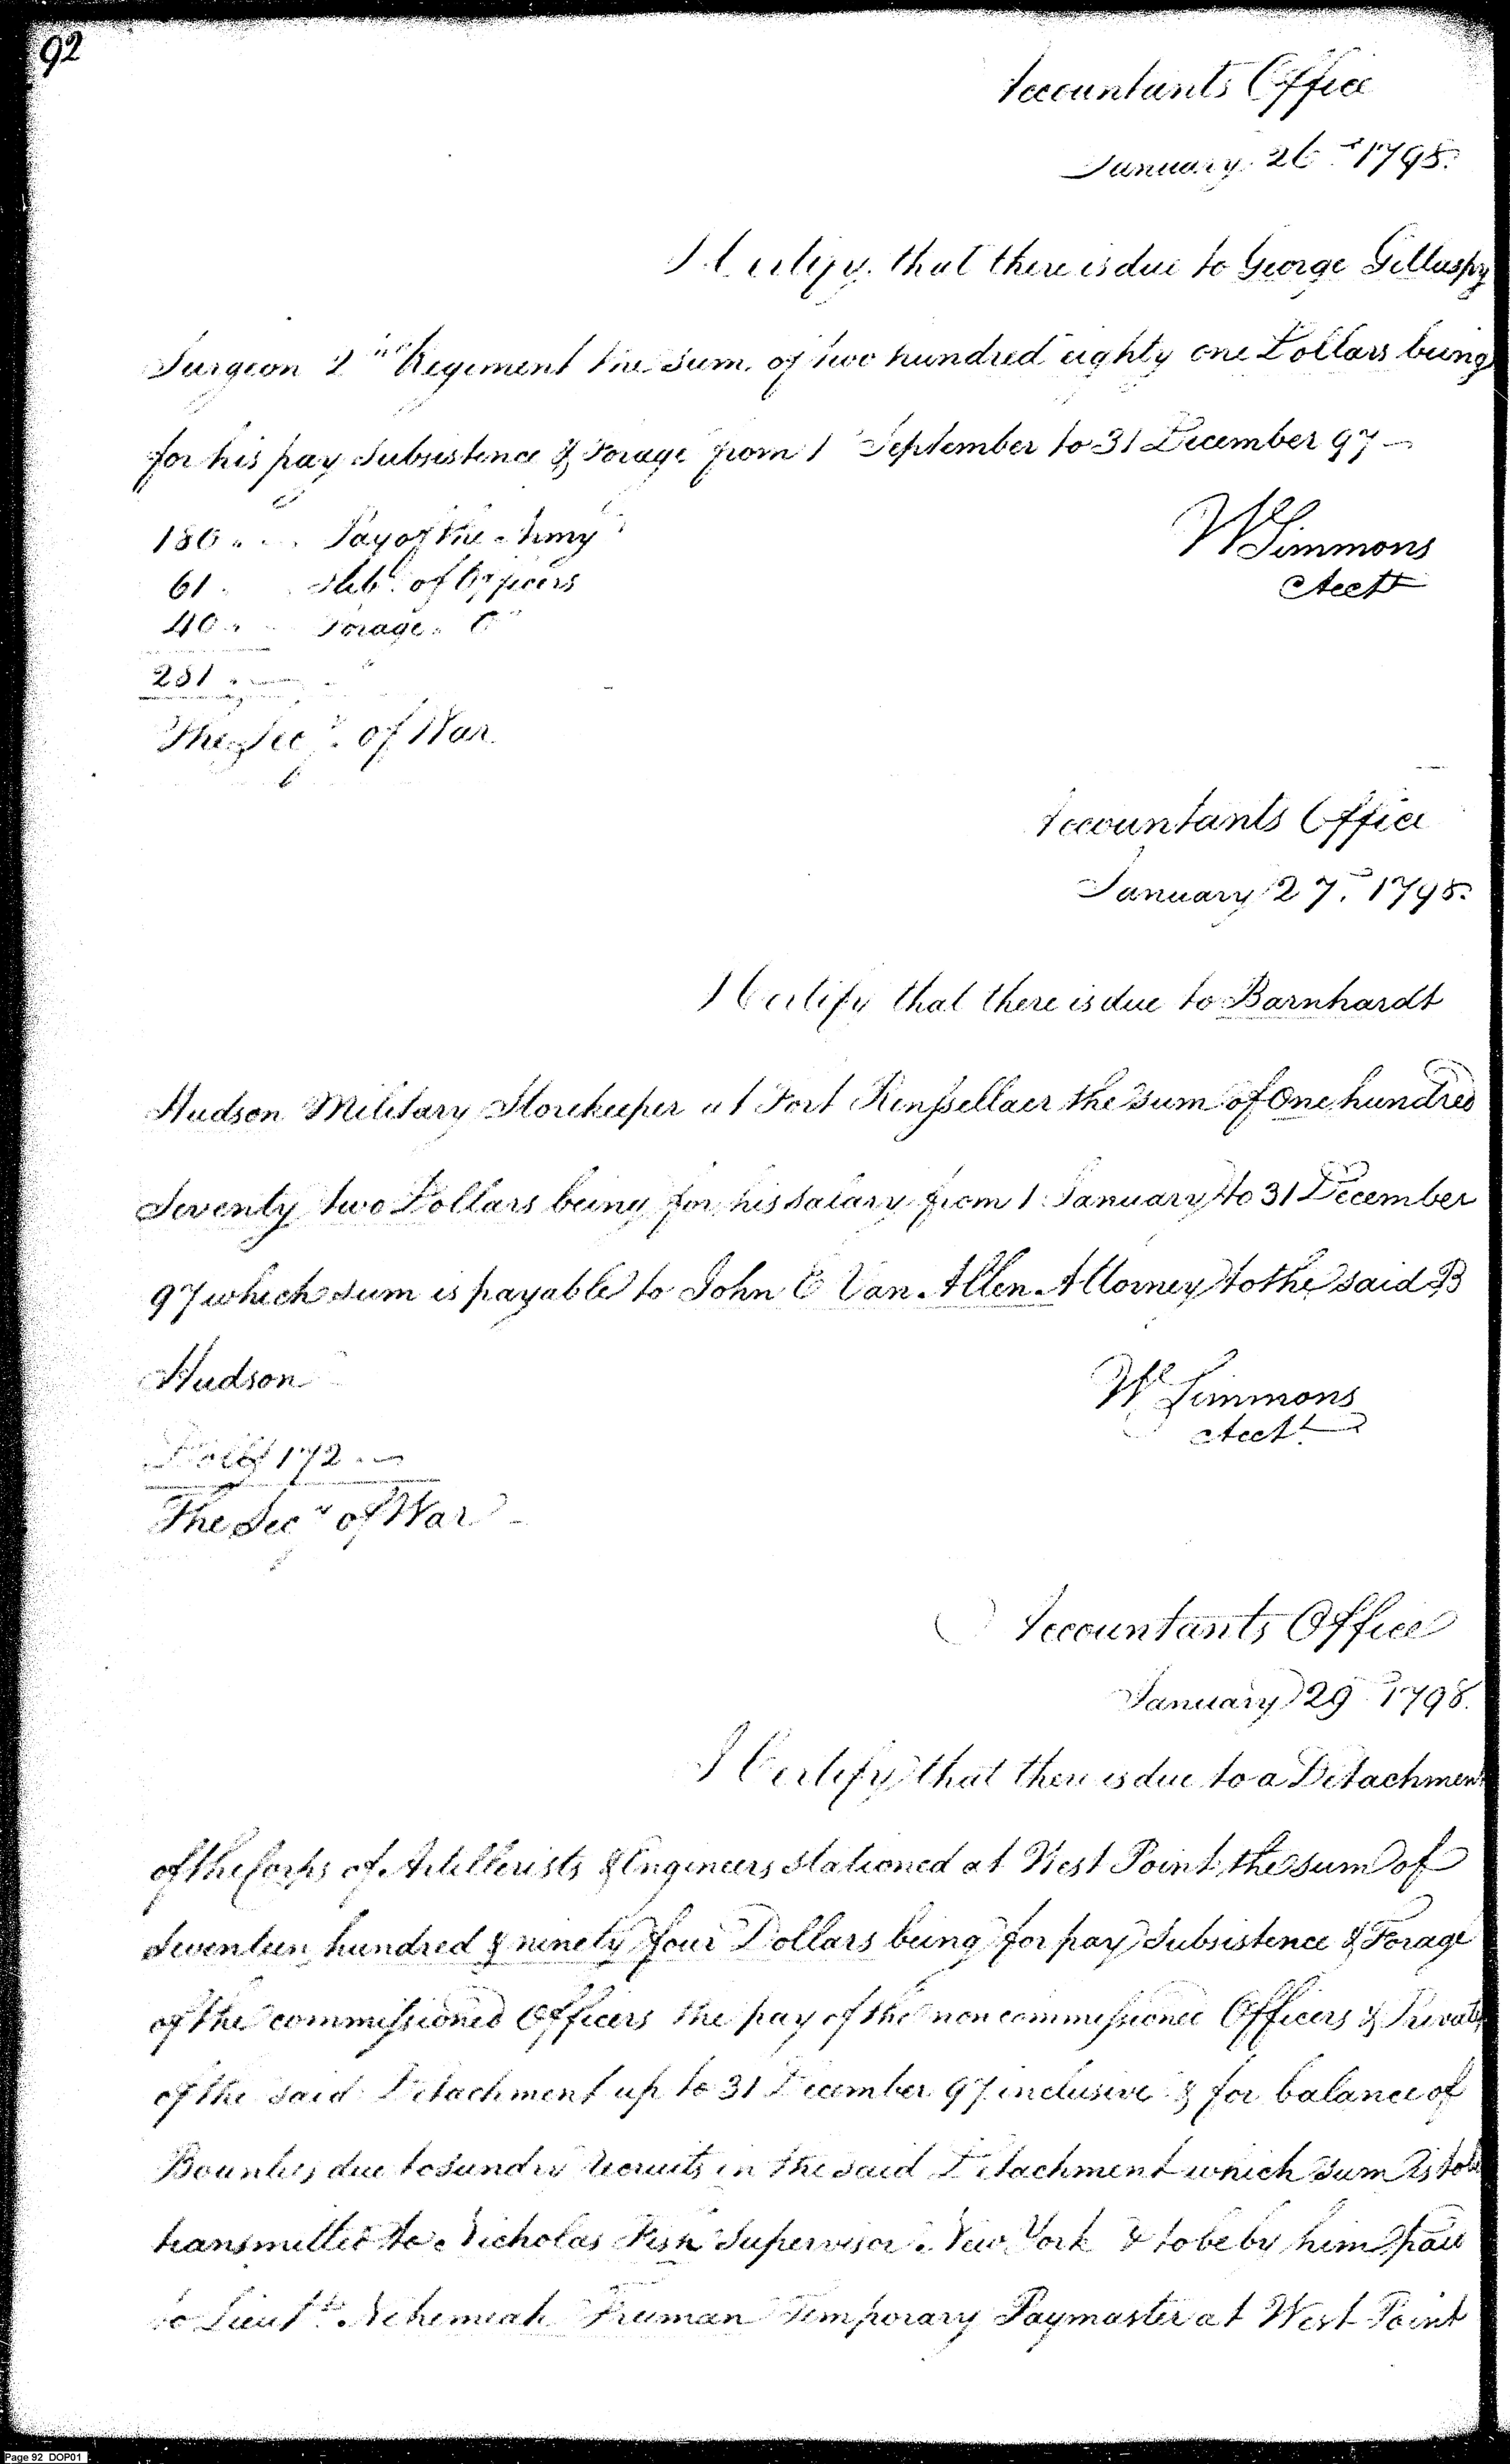 92
Accountants Office
January 26th 1798.
I Certify that there is due to George Gillaspy
Surgeon 2nd Regiment the sum of two hundred eighty one Dollars being
for his pay Subsistence & Forage from 1 September to 31 December 97
180 Pay of the Army
61 Subs. of Officers
40 Forage
281
WSimmons
Acctt
The Secy. of War
Accountants Office
January 27. 1798.
I Certify that there is due to Barnhardt
Hudson Military Storekeeper at Fort Rensselaer the sum of One hundred
Seventy two Dollars being for his salary from 1 January to 31 December
97 which sum is payable to John E Van Allen Attorney to the said B
Hudson
W Simmons
Acctt.
Dolls 172
The Secy of War
Accountants Office
January 29 1798.
I Certify that there is due to a Detachment
of the Corps of Artillerists & Engineers stationed at West Point the sum of
Seventeen hundred & ninety four Dollars being for pay Subsistence & Forage
of the commissioned Officers the pay of the non commissioned Officers & Privates
of the said Detachment up to 31 December 97 inclusive & for balance of
Bounties due to sundry recruits in the said Detachment which sum is to be
transmitted to Nicholas Fish Supervisor New York & to be by him paid
to Lieutt. Nehemiah Freeman Temporary Paymaster at West Point
Page 92 DOP01